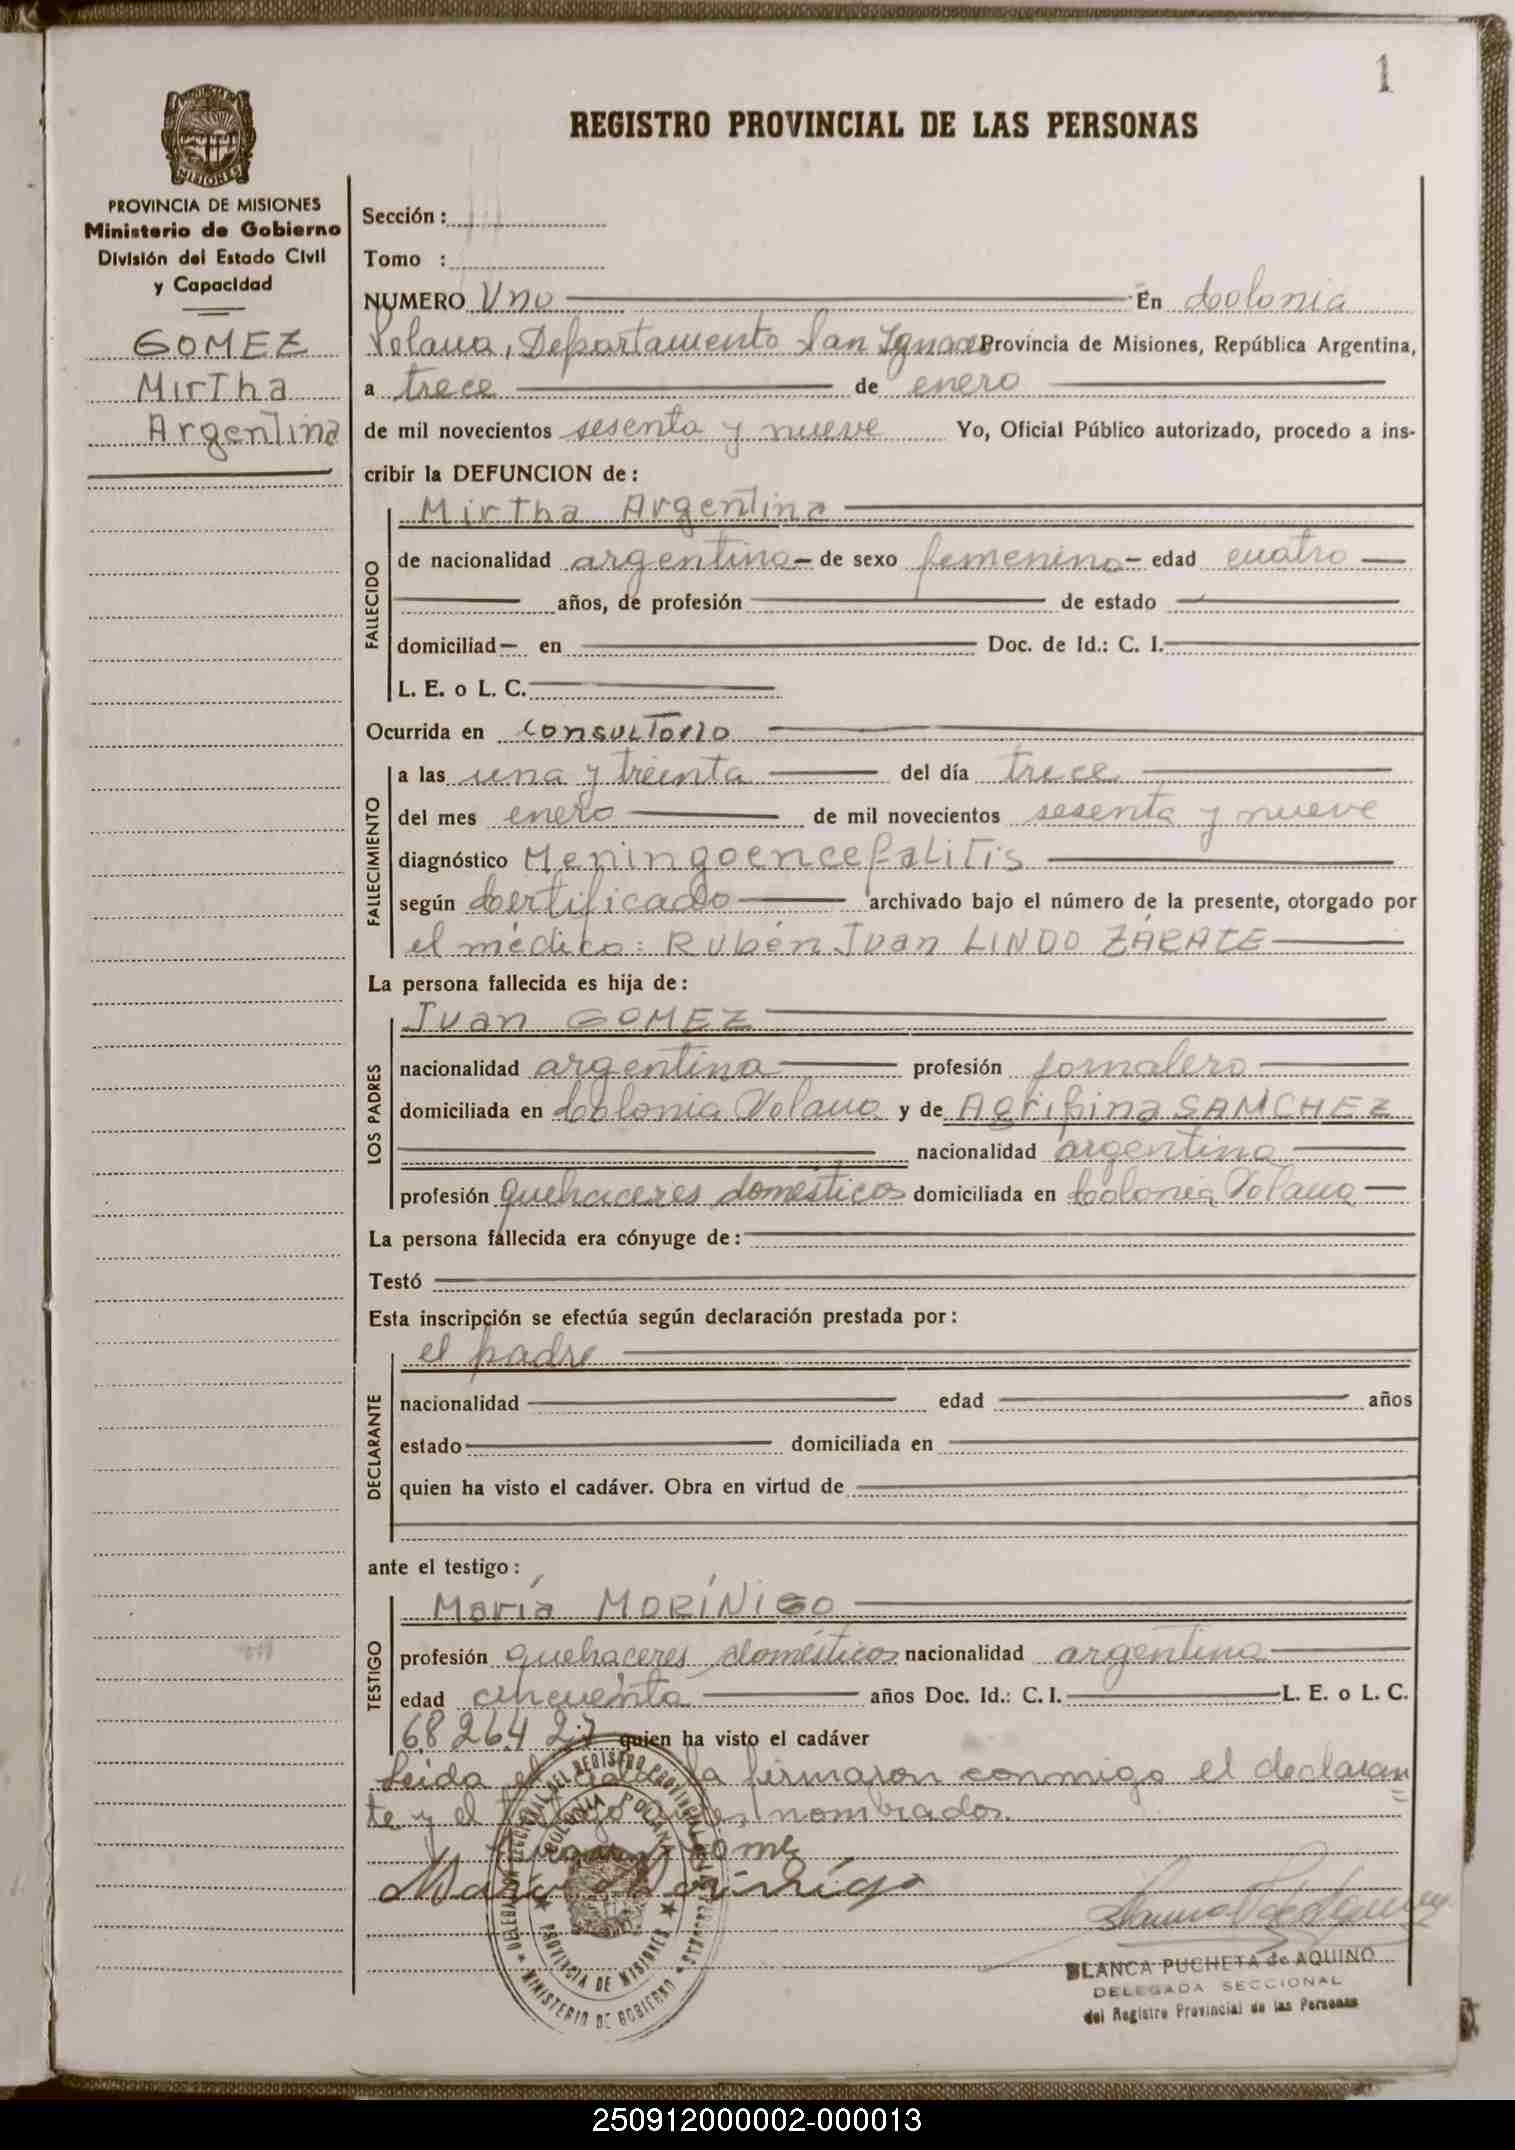 1
REGISTRO PROVINCIAL DE LAS PERSONAS
MISIONES
PROVINCIA DE MISIONES
Ministerio de Gobierno
División del Estado Civil
y Capacidad
GOMEZ
Mirtha
Argentina
Sección :
Tomo :
NUMERO Uno En Colonia
Polana, Departamento San Ignacio Provincia de Misiones, República Argentina,
a trece de enero
de mil novecientos sesenta y nueve Yo, Oficial Público autorizado, procedo a ins-
cribir la DEFUNCION de :
Mirtha Argentina
FALLECIDO
de nacionalidad argentina de sexo femenino edad cuatro
años, de profesión de estado
domiciliad en Doc. de Id.: C. I.
L. E. o L. C.
Ocurrida en consultorio
FALLECIMIENTO
a las una y treinta del día trece
del mes enero de mil novecientos sesenta y nueve
diagnóstico Meningoencefalitis
según Certificado archivado bajo el número de la presente, otorgado por
el médico: Rubén Juan LINDO ZÁRATE
La persona fallecida es hija de :
LOS PADRES
Juan GOMEZ
nacionalidad argentina profesión jornalero
domiciliada en Colonia Polana y de Agrifina SANCHEZ
nacionalidad argentina
profesión quehaceres domésticos domiciliada en Colonia Polana
La persona fallecida era cónyuge de :
Testó
Esta inscripción se efectúa según declaración prestada por :
DECLARANTE
el padre
nacionalidad edad años
estado domiciliada en
quien ha visto el cadáver. Obra en virtud de
ante el testigo :
TESTIGO
María MORÍNIGO
profesión quehaceres domésticos nacionalidad argentina
edad cincuenta años Doc. Id.: C. I. L. E. o L. C.
6826427 quien ha visto el cadáver
Leida el acta la firmaron conmigo el declaran=
te y el testigo nombrados.
Juan Gomez
Maria Morinigo
DELEGACION SECCIONAL DEL REGISTRO PROVINCIAL DE LAS PERSONAS
COLONIA POLANA
PROVINCIA DE MISIONES
MINISTERIO DE GOBIERNO
BLANCA PUCHETA de AQUINO
DELEGADA SECCIONAL
del Registro Provincial de las Personas
250912000002-000013